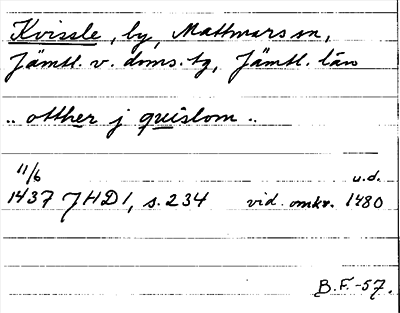 Kvissle, by, Mattmars sn,
Jämtl. v. doms. tg, Jämtl. län
.. otther j quislom ..
11/6 u.d.
1437 JHD 1, s. 234 vid. omkr. 1480
B.F.-57.